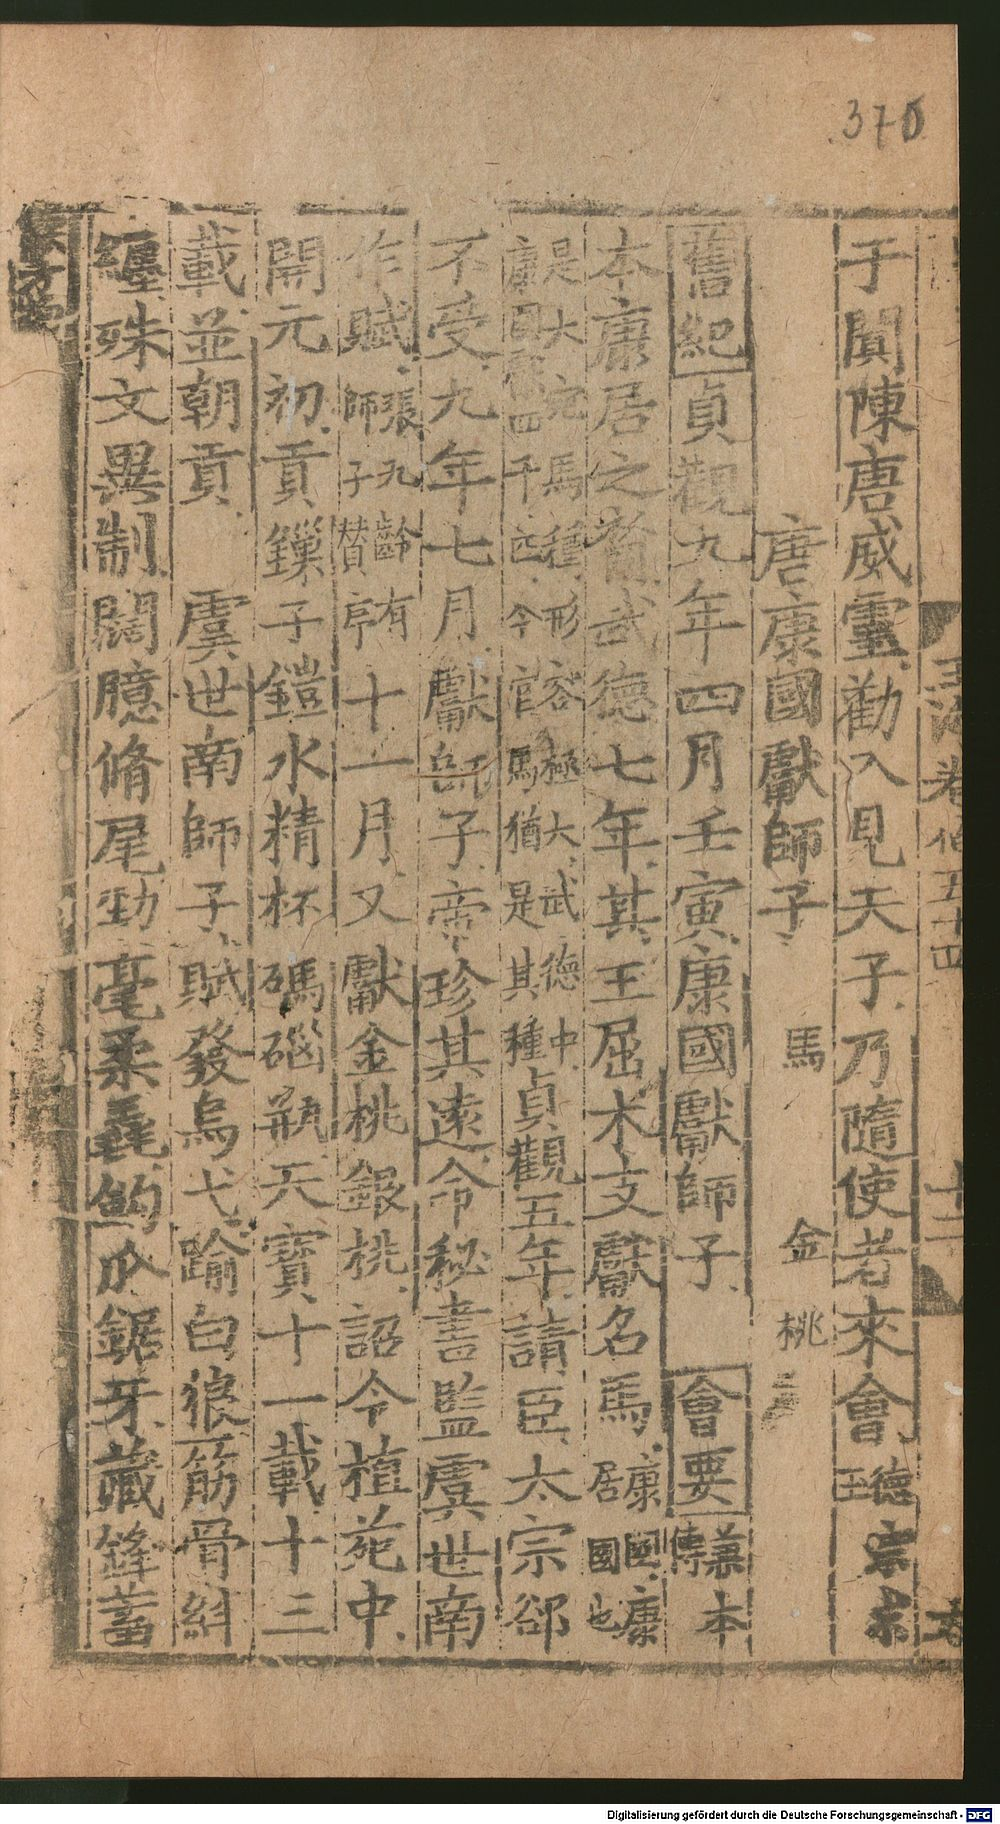 370
玉海卷一百五十四
十二
于闐陳唐威靈勸入見天子乃隨使者來會德宗求玉
唐康國獻師子 馬 金桃
舊紀貞觀九年四月壬寅康國獻師子 會要兼傳本
本康居之裔武德七年其王屈木支獻名馬康國康居國也
是大宛馬種形容極大武德中康國獻四千匹今官馬猶是其種貞觀五年請臣太宗郤
不受九年七月獻師子帝珍其遠命秘書監虞世南
作賦張九齡有師子贊序十一月又獻金桃銀桃詔令植苑中
開元初貢鏁子鎧水精杯碼碯瓶天寶十一載十三
載並朝貢 虞世南師子賦發烏弋踰白狼筋骨糾
纏殊文異制闊臆脩尾勁毫柔毳鉤爪鋸牙藏鋒蓄
Digitalisierung gefördert durch die Deutsche Forschungsgemeinschaft - DFG